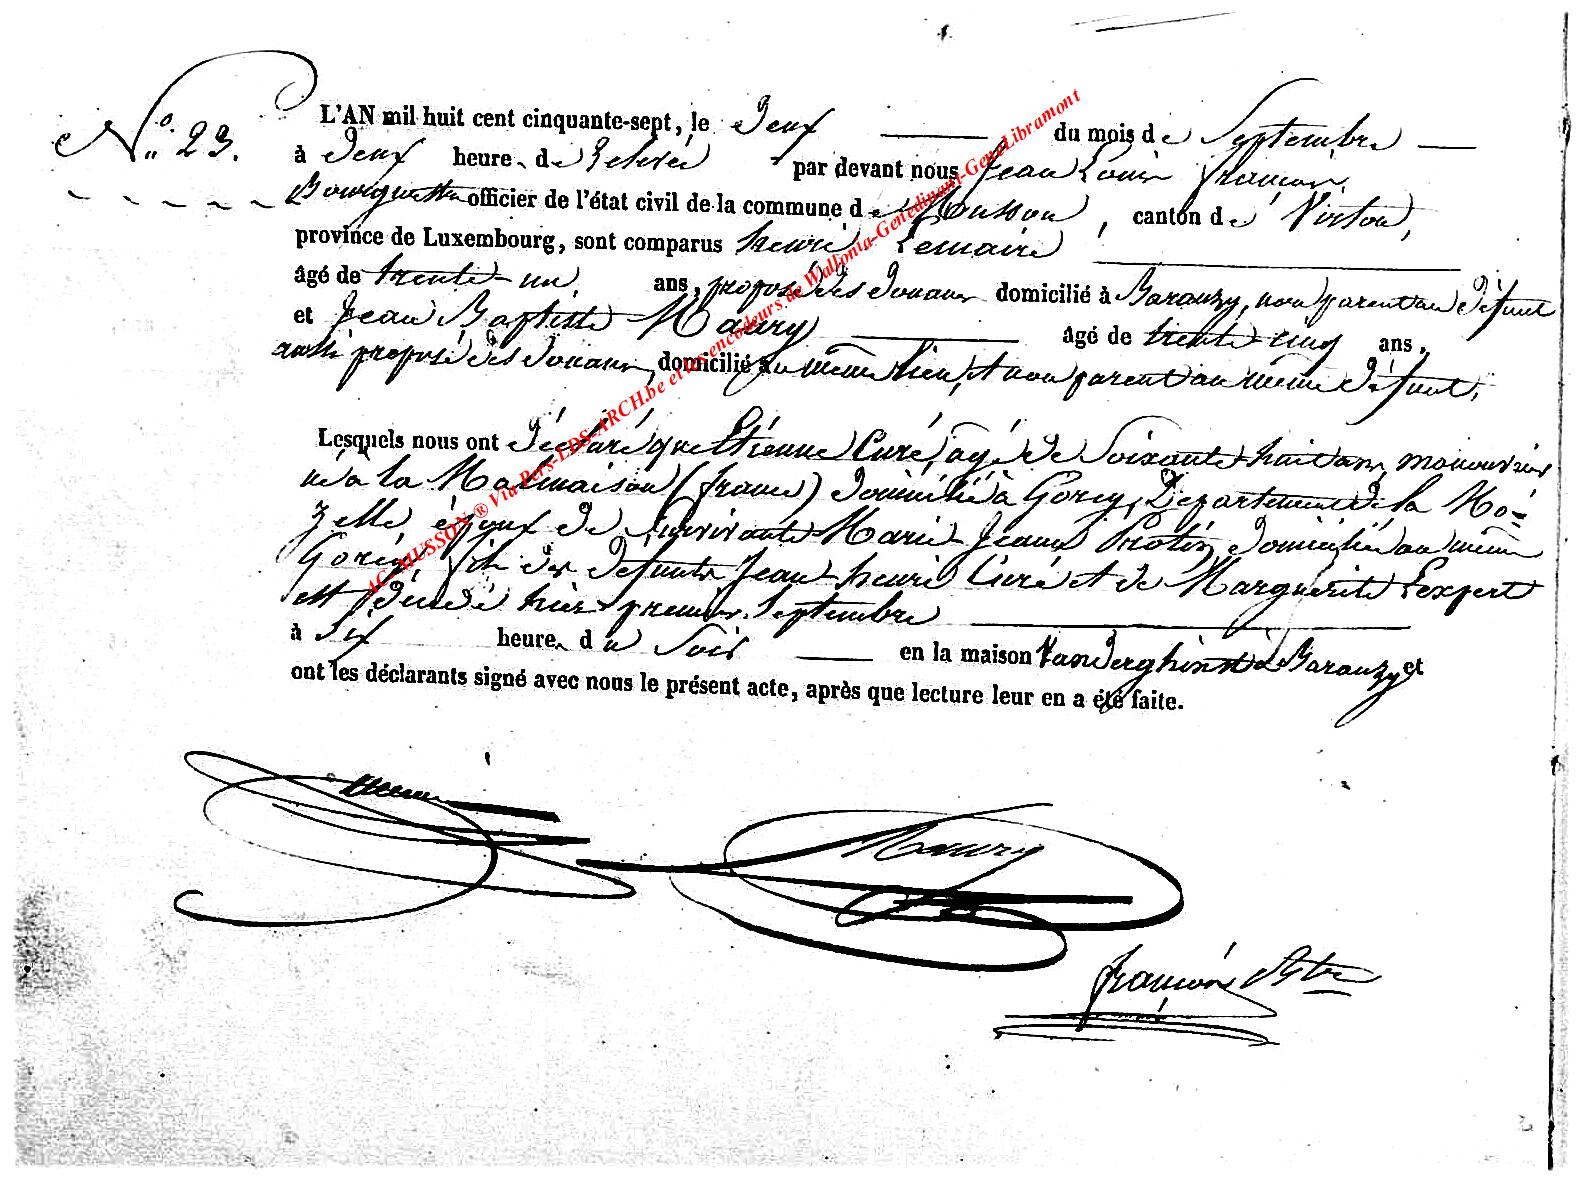 N° 23.
L'AN mil huit cent cinquante-sept, le Deux du mois de Septembre
à Deux heure de Relevée par devant nous Jean Louis François
Bourguettre officier de l'état civil de la commune de Musson, canton de Virton,
province de Luxembourg, sont comparus henri Lemaire
âgé de trente-un ans, préposé des Douanes domicilié à Baranzy, non parent au Défunt
et Jean Baptiste Maury âgé de trente-cinq ans,
aussi préposé des Douanes, domicilié au même lieu, et non parent au même Défunt,
Lesquels nous ont déclaré que Etienne Curé, agé de Soixante-huit ans, manouvrier
né à la Malmaison (france) domicilié à Gorcy, Département de la Mo-
zelle, époux de Survivante Marie-Jeanne Protin, domiciliée au même
Gorcy, fils des defunts Jean-henri Curé et de Marguerite Lexpert
est décédé hier premier Septembre
à Six heure du Soir en la maison Vanderghinst à Baranzy et
ont les déclarants signé avec nous le présent acte, après que lecture leur en a été faite.
AC MUSSON ® Via Pers-LDS-ARCH.be et les encodeurs de Wallonia-Genedinant-GeneLibramont
Maury
françois